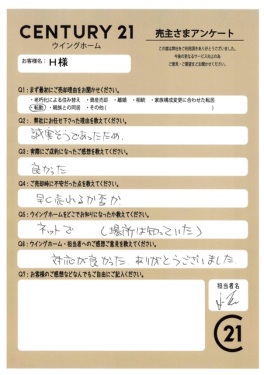 CENTURY 21
ウイングホーム
売主さまアンケート
この度は弊社をご利用頂きありがとうございました。
今後の更なるサービス向上の為
ご意見・ご感想をお聞かせください。
お客様名： H様
Q1：まず最初にご売却理由をお聞かせください。
・老朽化による住み替え ・資産売却 ・離婚 ・相続 ・家族構成変更に合わせた転居
・転勤 ・親族との同居 ・その他（ ）
Q2：弊社にお任せ下さった理由を教えてください。
誠実そうであったため。
Q3：実際にご成約になったご感想を教えてください。
良かった
Q4：ご売却時に不安だった点を教えてください。
早く売れるか否か
Q5：ウイングホームをどこでお知りになったか教えてください。
ネットで （場所は知っていた）
Q6：ウイングホーム・担当者へのご感想ご意見を教えてください。
対応が良かった ありがとうございました
Q7：お客様のご感想などなんでもご自由にご記入ください。
担当者名
C21